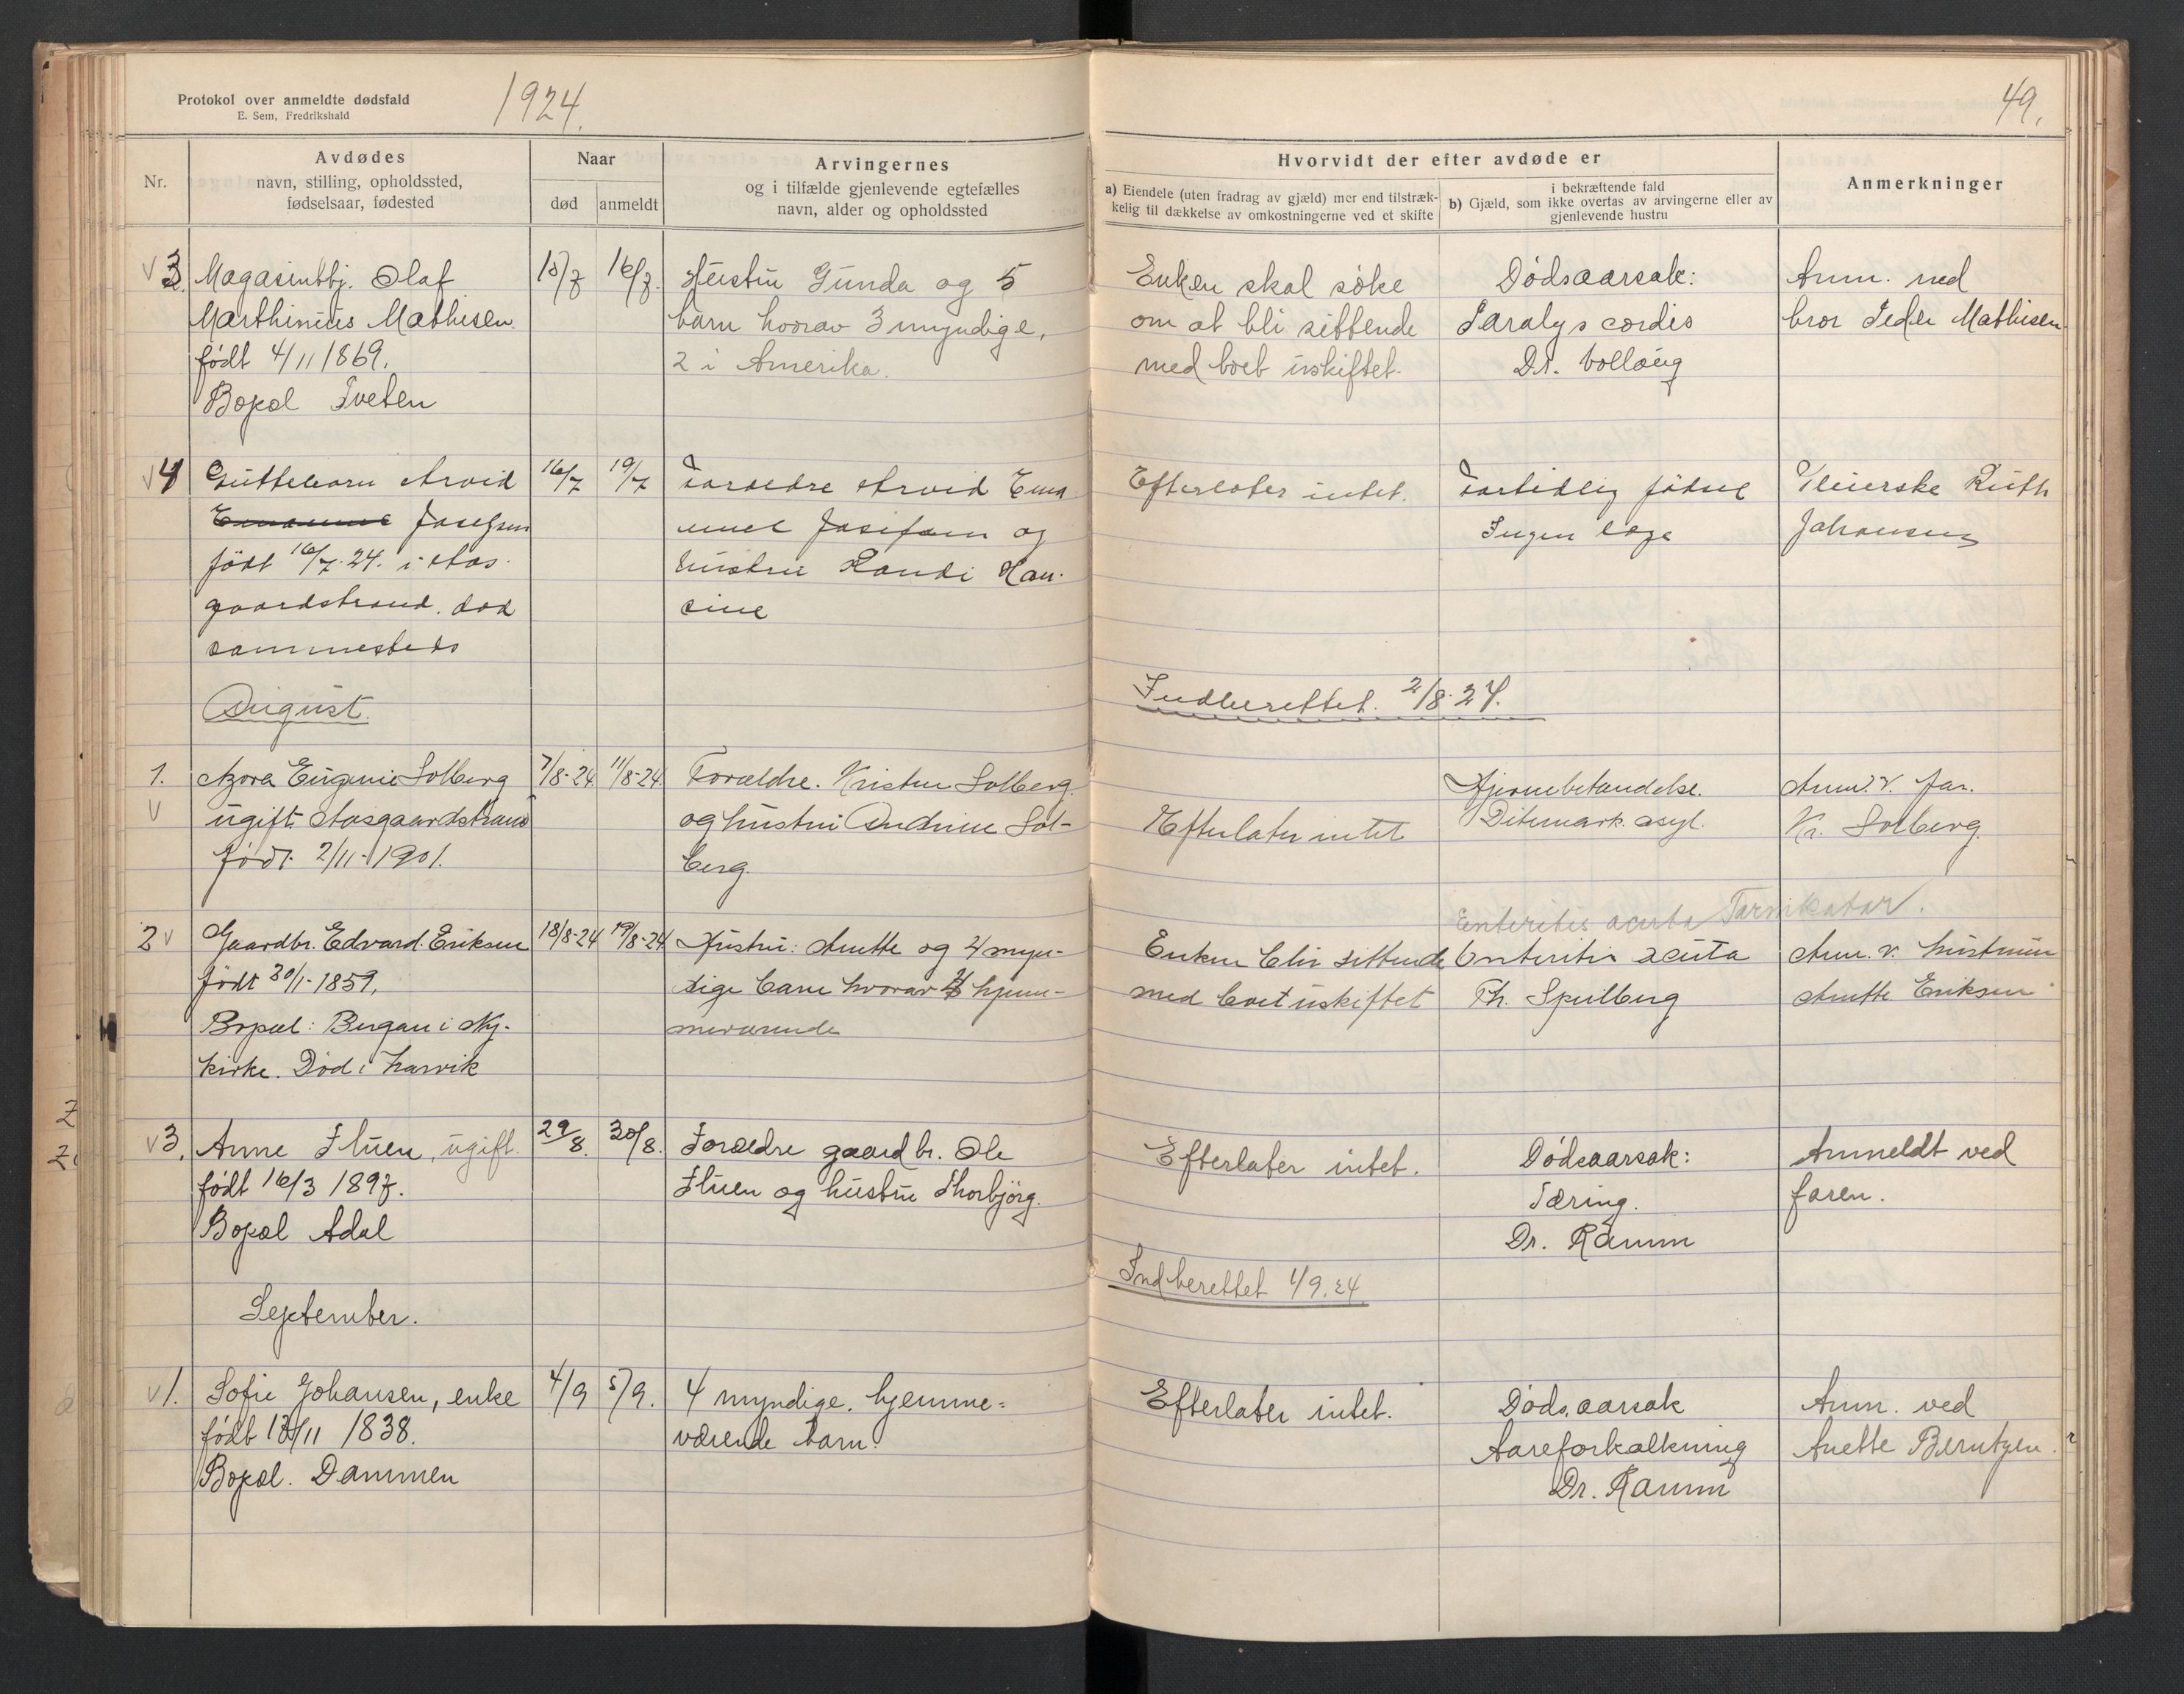 Protokol over anmeldte dødsfald
E. Sem, Fredrikshald
1924.
49.
Nr.
Avdødes
navn, stilling, opholdssted,
fødselsaar, fødested
Naar
død
anmeldt
Arvingernes
og i tilfælde gjenlevende egtefælles
navn, alder og opholdssted
Hvorvidt der efter avdøde er
a) Eiendele (uten fradrag av gjæld) mer end tilstræk-
kelig til dækkelse av omkostningerne ved et skifte
i bekræftende fald
b) Gjæld, som ikke overtas av arvingerne eller av
gjenlevende hustru
Anmerkninger
v 3. Magasinbtj. Olaf
Marthinius Mathisen
født 4/11 1869.
Bopæl Tveten
15/7
16/7.
Hustru Gunda og 5
barn hvorav 3 myndige,
2 i Amerika.
Enken skal söke
om at bli sittende
med boet uskiftet.
Dødsaarsak:
Paralys cordis
Dr. Vollaug
Anm. ved
bror Peder Mathisen
v 4 Guttebarn Arvid
Josefsen
født 16/7.24. i Aas-
gaardstrand. død
sammesteds
16/7
19/7
Foreldre Arvid Ema
nuel Josefsen og
hustru Randi Han-
sine
Efterlater intet.
Fortidlig födsel
Ingen læge
Pleierske Ruth
Johansen
August.
Indberettet. 2/8.24.
1. v
Azora Eugenie Solberg
ugift. Aasgaardstrand
født 2/11-1901.
7/8-24
11/8-24.
Forældre. Kristen Solberg
og hustru Andrine Sol-
berg.
Efterlater intet
Hjernebetendelse.
Dikemark asyl.
Anm. v. far.
Kr. Solberg.
2 v Gaardbr. Edvard Eriksen
født 30/1-1859,
Bopæl: Bergan i Ny-
kirke. Død i Larvik
18/8-24
19/8-24
Hustru: Anette og 4 myn-
dige barn hvorav hjem-
meværende
Enken blir sittende
med boet uskiftet
Enteritis acuta Tarmkatar.
Enteritis acuta
Th. Speilberg
Anm. v. hustruen
Anette Eriksen
v 3. Anne Fluen, ugift.
født 16/3 1897.
Bopæl Adal
29/8.
30/8.
Foreldre gaardbr. Ole
Fluen og hustru Thorbjörg.
Efterlater intet.
Dödsaarsak:
Tæring.
Dr. Ramm
Anmeldt ved
faren.
Indberettet 1/9.24
September.
v 1. Sofie Johansen, enke
født 13/11 1838.
Bopæl. Dammen
4/9
5/9.
4 myndige, hjemme=
værende barn.
Efterlater intet.
Døds.aarsak
Aareforkalkning
Dr. Ramm
Anm. ved
Anette Berntzen.